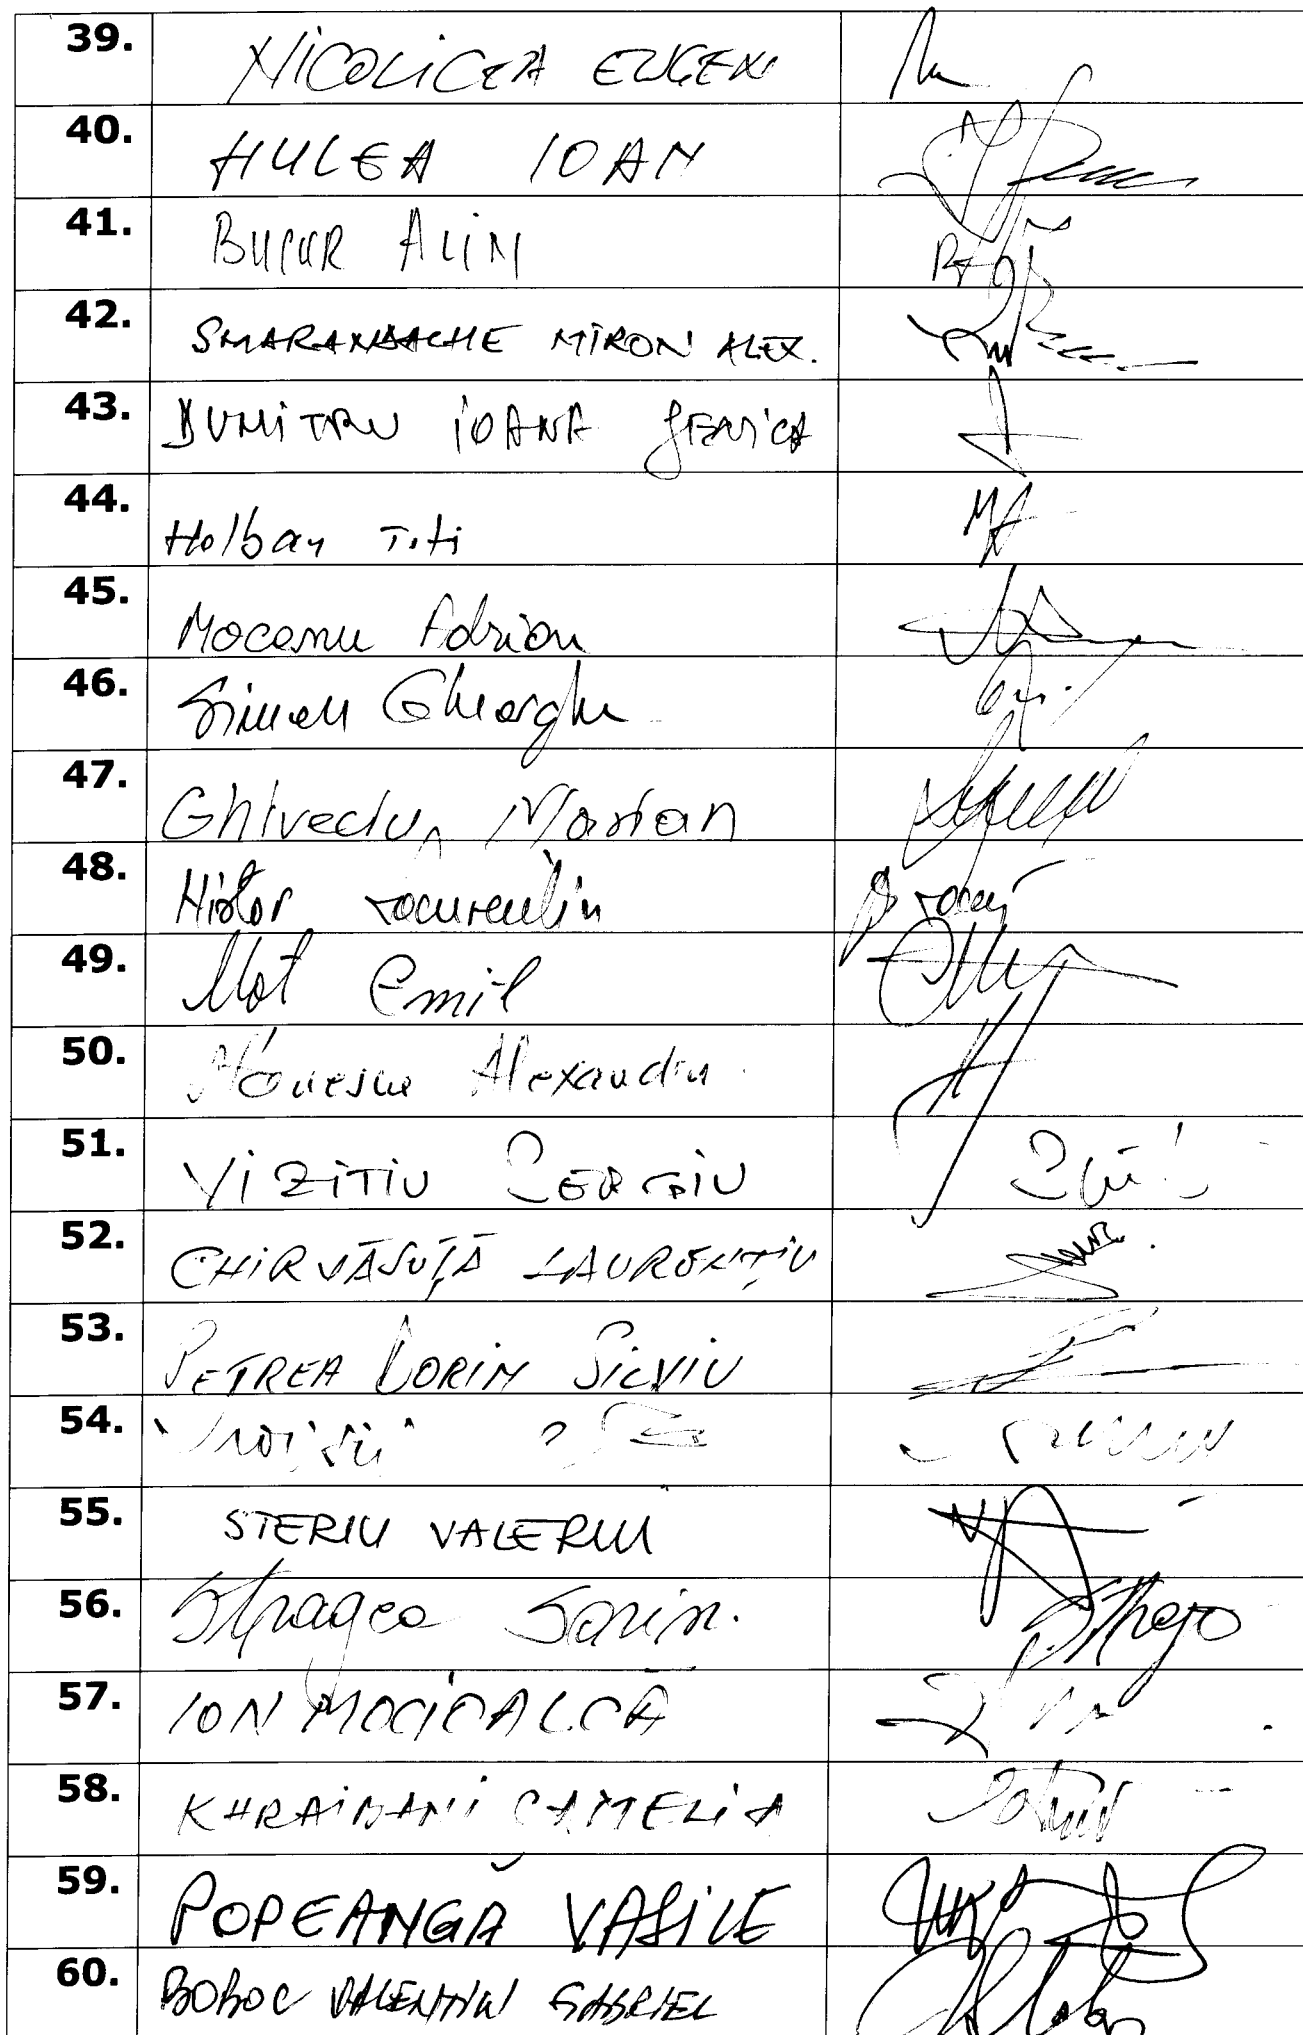 39. NICOLICEA EUGEN
40. HULEA IOAN
41. BUCUR ALIN
42. SMARANDACHE MIRON ALEX.
43. DUMITRU IOANA JENICA
44. Holban Titi
45. Mocanu Adrian
46. Simon Gheorghe
47. Ghiveciu Marian
48. Nistor Laurentiu
49. Mot Emil
50. Alexandru
51. VIZITIU SERGIU
52. CHIRVĂSUȚĂ LAURENȚIU
53. PETREA DORIN SILVIU
54.
55. STERIU VALERIU
56. Stragea Sorin.
57. ION MOCIOALCĂ
58. KHRAIBANI CAMELIA
59. POPEANGĂ VASILE
60. BOBOC VALENTIN GABRIEL